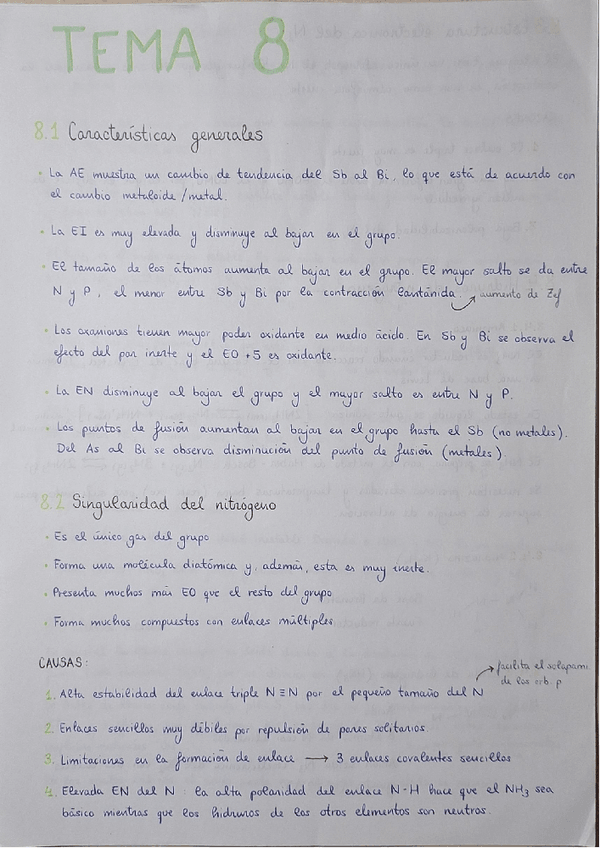 TEMA 8
8.1 Características generales
· La AE muestra un cambio de tendencia del Sb al Bi, lo que está de acuerdo con
el cambio metaloide/metal.
· La EI es muy elevada y disminuye al bajar en el grupo.
· El tamaño de los átomos aumenta al bajar en el grupo. El mayor salto se da entre
N y P, el menor entre Sb y Bi por la contracción lantánida. → aumento de Zef
· Los oxaniones tienen mayor poder oxidante en medio ácido. En Sb y Bi se observa el
efecto del par inerte y el EO +5 es oxidante.
· La EN disminuye al bajar el grupo y el mayor salto es entre N y P.
· Los puntos de fusión aumentan al bajar en el grupo hasta el Sb (no metales).
Del As al Bi se observa disminución del punto de fusión (metales).
8.2 Singularidad del nitrógeno
· Es el único gas del grupo
· Forma una molécula diatómica y, además, esta es muy inerte.
· Presenta muchos más EO que el resto del grupo
· Forma muchos compuestos con enlaces múltiples
CAUSAS:
→ facilita el solapami
de los orb p
1. Alta estabilidad del enlace triple N≡N por el pequeño tamaño del N
2. Enlaces sencillos muy débiles por repulsión de pares solitarios
3. Limitaciones en la formación de enlace → 3 enlaces covalentes sencillos
4. Elevada EN del N : la alta polaridad del enlace N-H hace que el NH3 sea
básico mientras que los hidruros de los otros elementos son neutros.